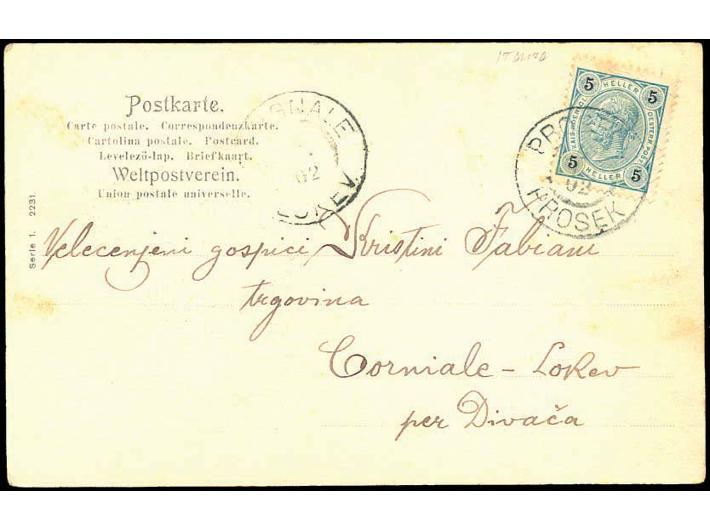 Postkarte.
Carte postale. Correspondenzkarte.
Cartolina postale. Postcard.
Levelező-lap. Briefkaart.
Weltpostverein.
Union postale universelle.
Serie 1. 2231.
5 HELLER 5
5 HELLER 5
PROSEK
02
02
Velecenjeni gospici Kristini Fabiani
trgovina
Corniale - Lokev
per Divača